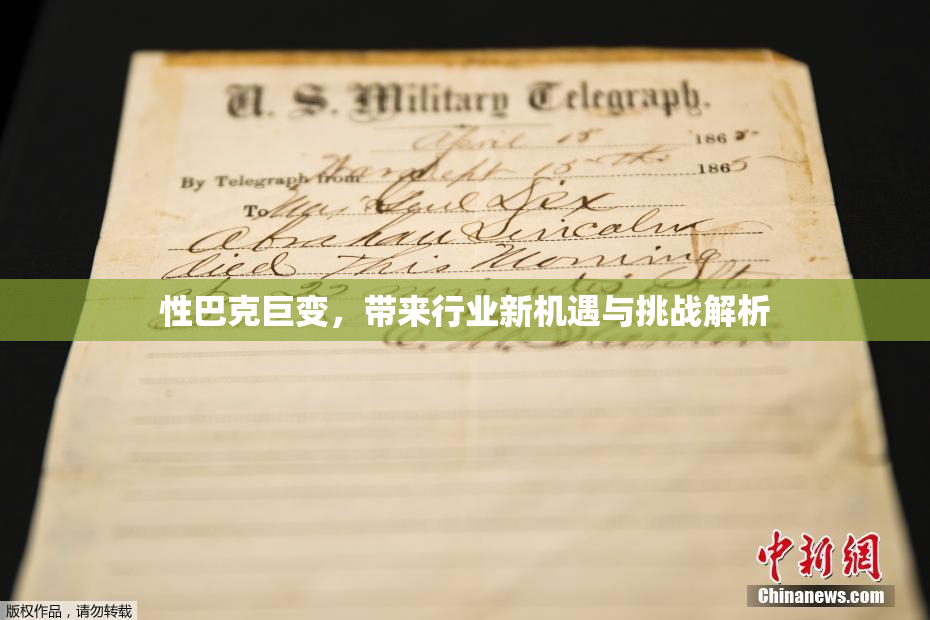 U. S. Military Telegraph.
April 15 1865
By Telegraph from War Dept 15th 1865
To Maj Genl Dix
Abraham Lincoln
died This Morning
at 22 minutes after
性巴克巨变，带来行业新机遇与挑战解析
E. M. Stanton
中新网
Chinanews.com
版权作品，请勿转载